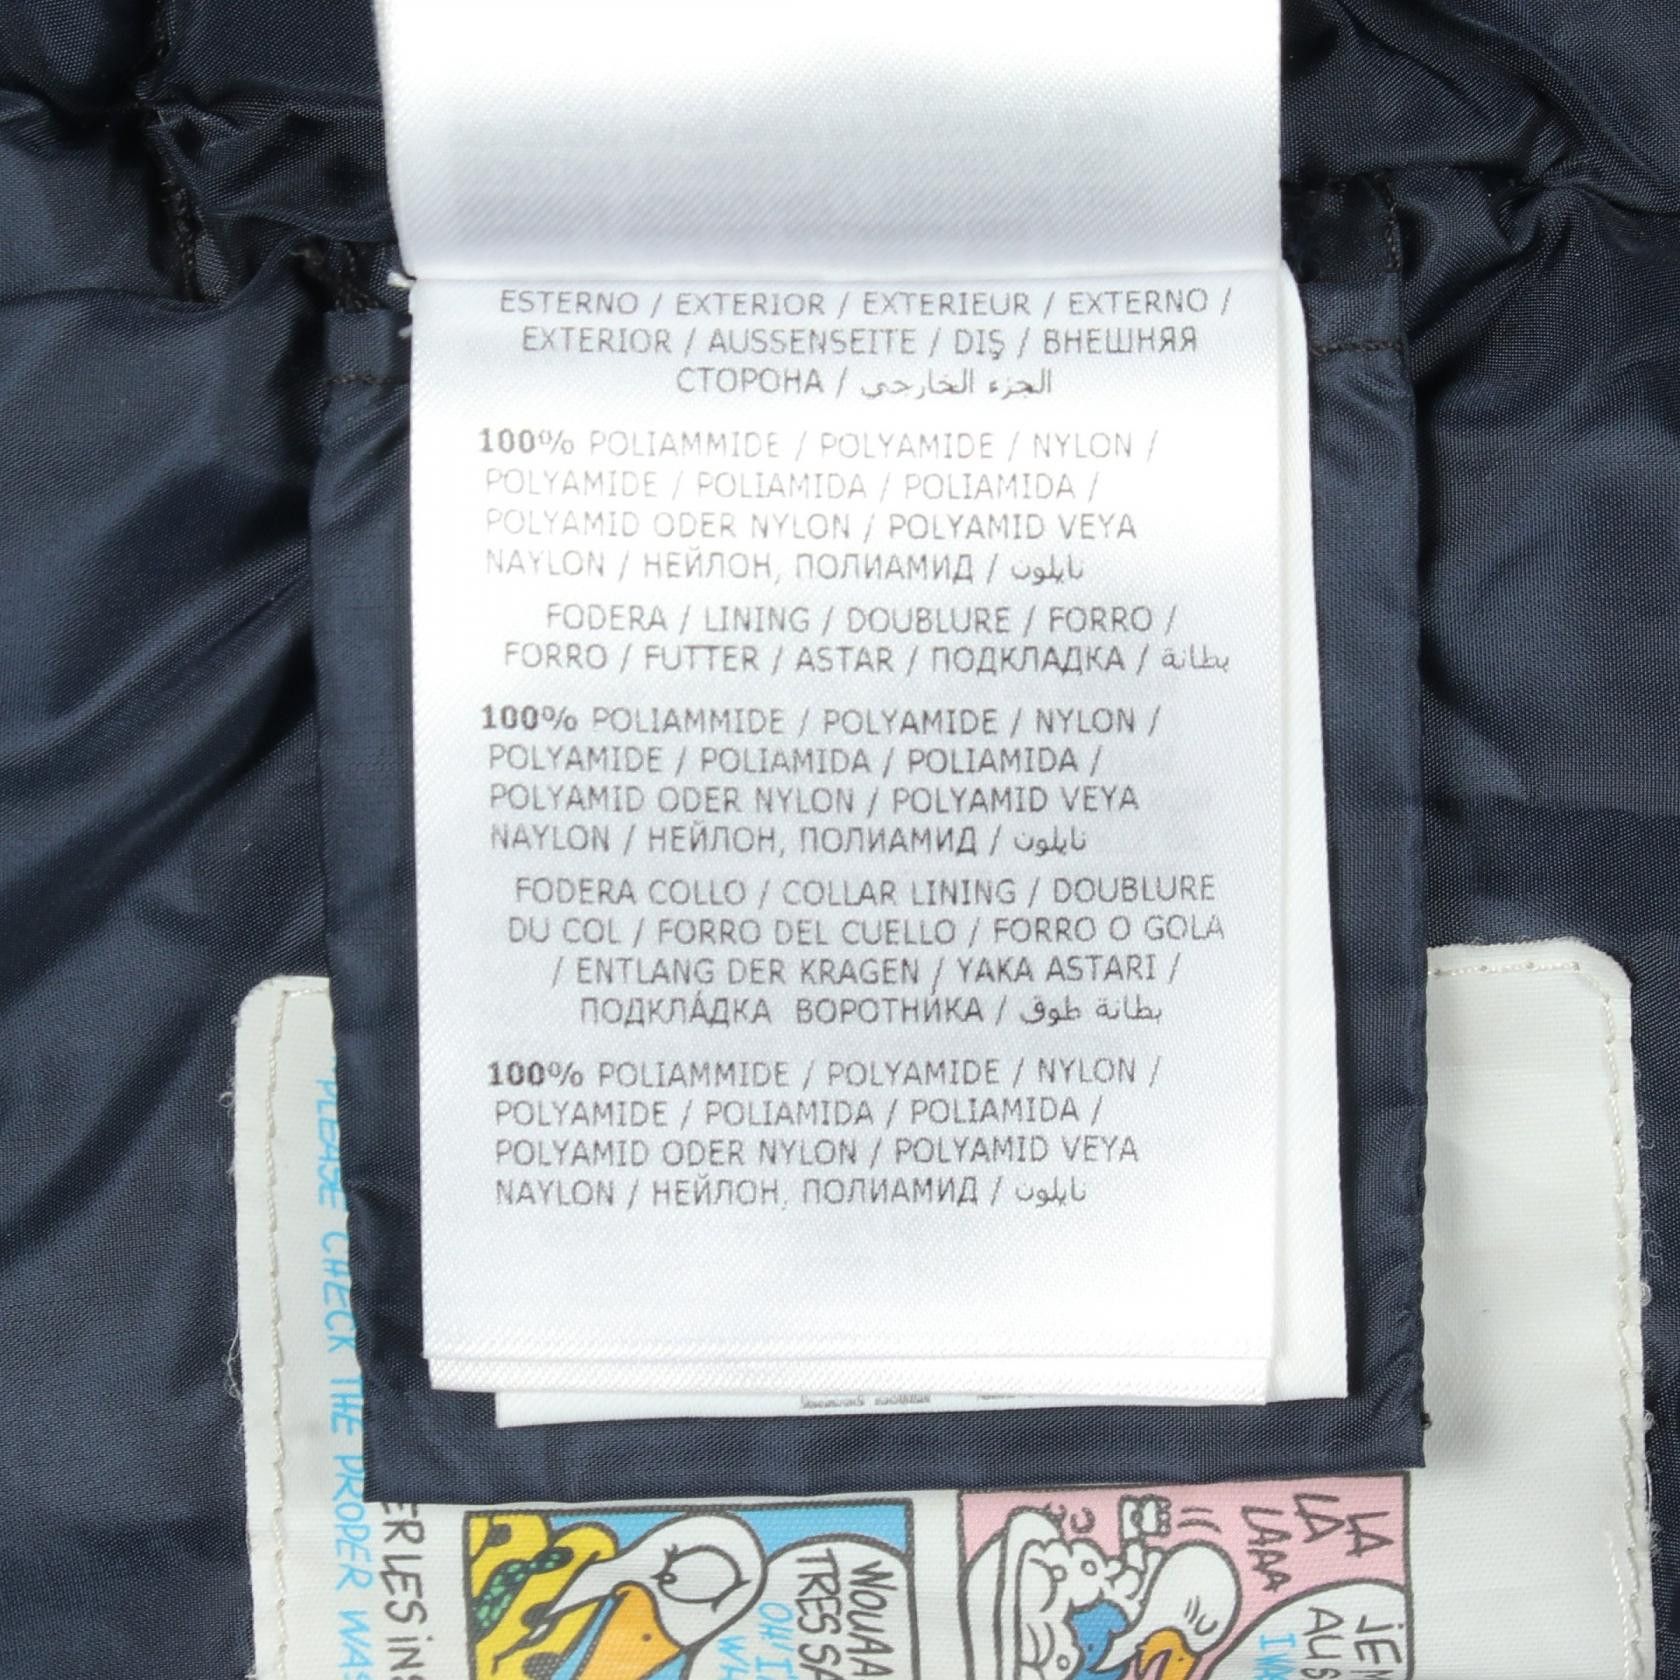 ESTERNO / EXTERIOR / EXTERIEUR / EXTERNO /
EXTERIOR / AUSSENSEITE / DIŞ / ВНЕШНЯЯ
СТОРОНА / الجزء الخارجي
100% POLIAMMIDE / POLYAMIDE / NYLON /
POLYAMIDE / POLIAMIDA / POLIAMIDA /
POLYAMID ODER NYLON / POLYAMID VEYA
NAYLON / НЕЙЛОН, ПОЛИАМИД / نايلون
FODERA / LINING / DOUBLURE / FORRO /
FORRO / FUTTER / ASTAR / ПОДКЛАДКА / بطانة
100% POLIAMMIDE / POLYAMIDE / NYLON /
POLYAMIDE / POLIAMIDA / POLIAMIDA /
POLYAMID ODER NYLON / POLYAMID VEYA
NAYLON / НЕЙЛОН, ПОЛИАМИД / نايلون
FODERA COLLO / COLLAR LINING / DOUBLURE
DU COL / FORRO DEL CUELLO / FORRO O GOLA
/ ENTLANG DER KRAGEN / YAKA ASTARI /
ПОДКЛА́ДКА ВОРОТНИ́КА / بطانة طوق
100% POLIAMMIDE / POLYAMIDE / NYLON /
POLYAMIDE / POLIAMIDA / POLIAMIDA /
POLYAMID ODER NYLON / POLYAMID VEYA
NAYLON / НЕЙЛОН, ПОЛИАМИД / نايلون
PLEASE CHECK THE PROPER
WOUAA
TRES
OH!
LA
LA
LAAA